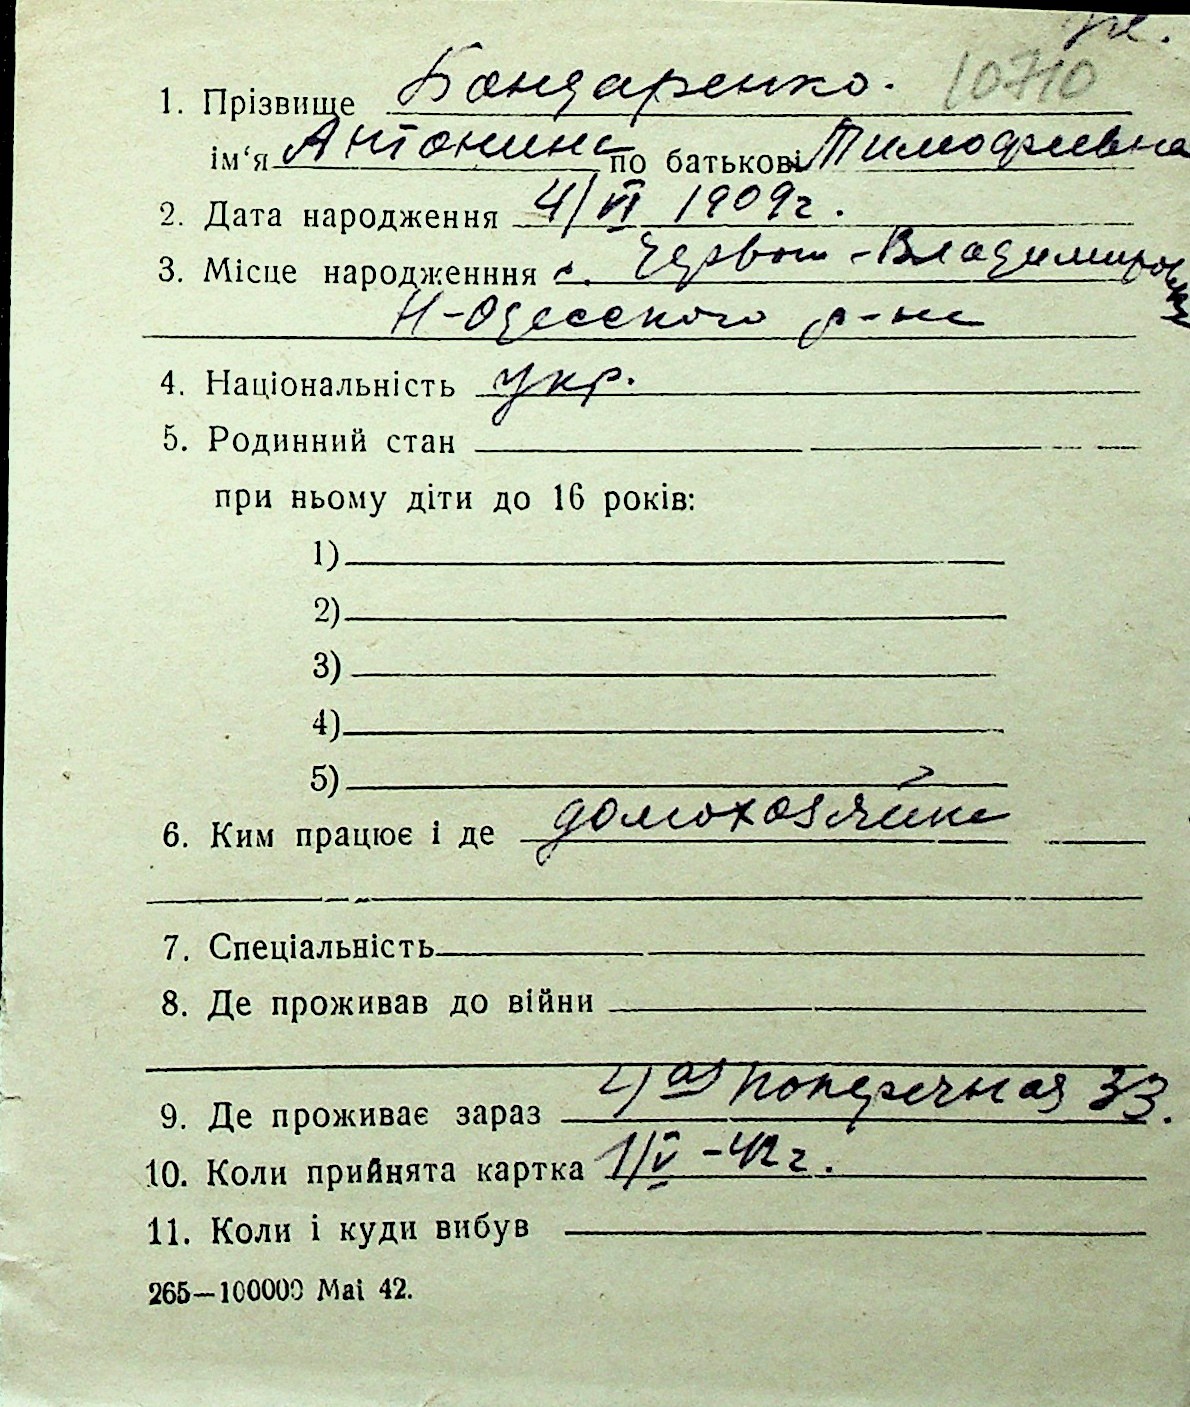 10710
1. Прізвище Бондаренко.
ім'я Антонина по батькові Тимофеевна
2. Дата народження 4/VI 1909г.
3. Місце народженння с. Червон-Владимировка
Н-Одесского р-на
4. Національність укр.
5. Родинний стан
при ньому діти до 16 років:
1)
2)
3)
4)
5)
6. Ким працює і де домохозяйка
7. Спеціальність
8. Де проживав до війни
9. Де проживає зараз 4ая Поперечная 33.
10. Коли прийнята картка 1/V-42г.
11. Коли і куди вибув
265—100000 Mai 42.